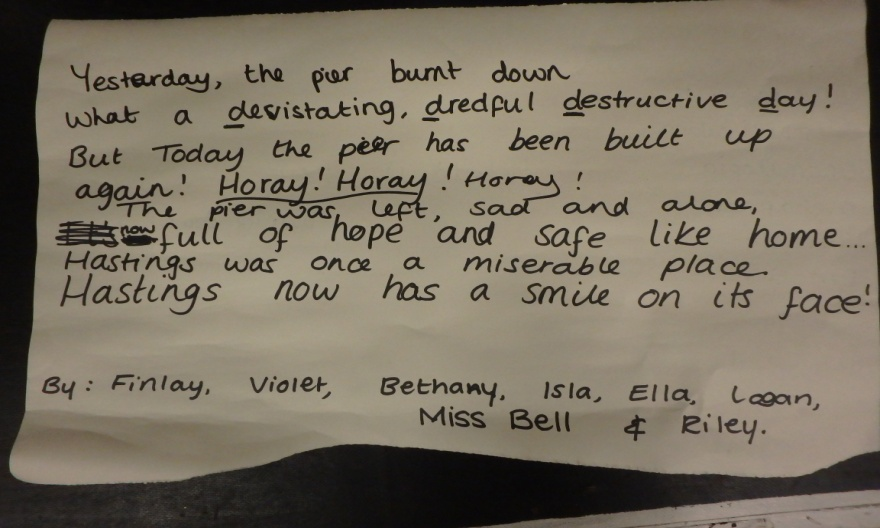 Yesterday, the pier burnt down
What a devistating, dredful destructive day!
But Today the pier has been built up
again! Horay! Horay! Horay!
The pier was left, sad and alone,
now full of hope and safe like home...
Hastings was once a miserable place.
Hastings now has a smile on its face!
By: Finlay, Violet, Bethany, Isla, Ella, Logan,
Miss Bell & Riley.